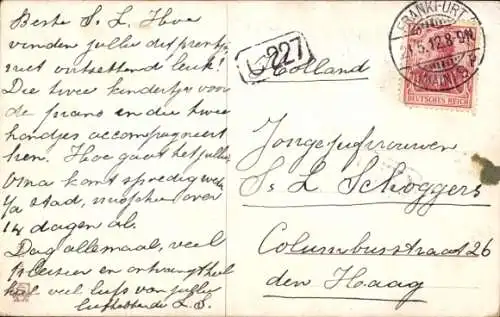 Beste S. L. Hoe
vinden jullie dit prentje
niet ontzettend leuk!
Die twee kindertjes voor
de piano en die twee
hondjes accompagneert
hen. Hoe gaat het jullie
Oma komt spoedig weer
in stad, misschien over
14 dagen al.
Dag allemaal, veel
plezier en ontvangt heel
heel veel liefs van jullie
liefhebbende L.S.
227
Holland
FRANKFURT
5.12.8-9N
(MAIN)
DEUTSCHES REICH
Jongejufrouwen
S. L Schoggers
Columbusstraat 26
den Haag